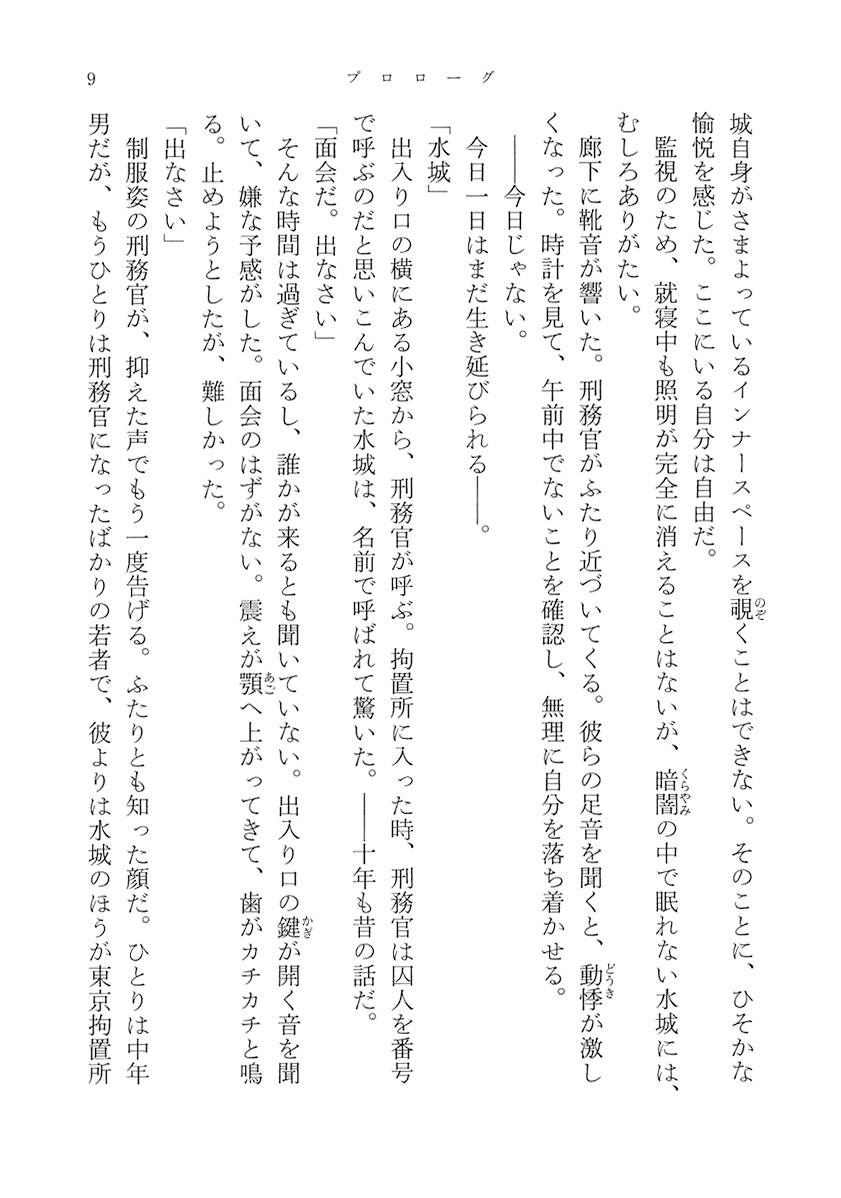 9
プロローグ
城自身がさまよっているインナースペースを覗くことはできない。そのことに、ひそかな
のぞ
愉悦を感じた。ここにいる自分は自由だ。
監視のため、就寝中も照明が完全に消えることはないが、暗闇の中で眠れない水城には、
くらやみ
むしろありがたい。
廊下に靴音が響いた。刑務官がふたり近づいてくる。彼らの足音を聞くと、動悸が激し
どうき
くなった。時計を見て、午前中でないことを確認し、無理に自分を落ち着かせる。
――今日じゃない。
今日一日はまだ生き延びられる――。
「水城」
出入り口の横にある小窓から、刑務官が呼ぶ。拘置所に入った時、刑務官は囚人を番号
で呼ぶのだと思いこんでいた水城は、名前で呼ばれて驚いた。――十年も昔の話だ。
「面会だ。出なさい」
そんな時間は過ぎているし、誰かが来るとも聞いていない。出入り口の鍵が開く音を聞
かぎ
いて、嫌な予感がした。面会のはずがない。震えが顎へ上がってきて、歯がカチカチと鳴
あご
る。止めようとしたが、難しかった。
「出なさい」
制服姿の刑務官が、抑えた声でもう一度告げる。ふたりとも知った顔だ。ひとりは中年
男だが、もうひとりは刑務官になったばかりの若者で、彼よりは水城のほうが東京拘置所